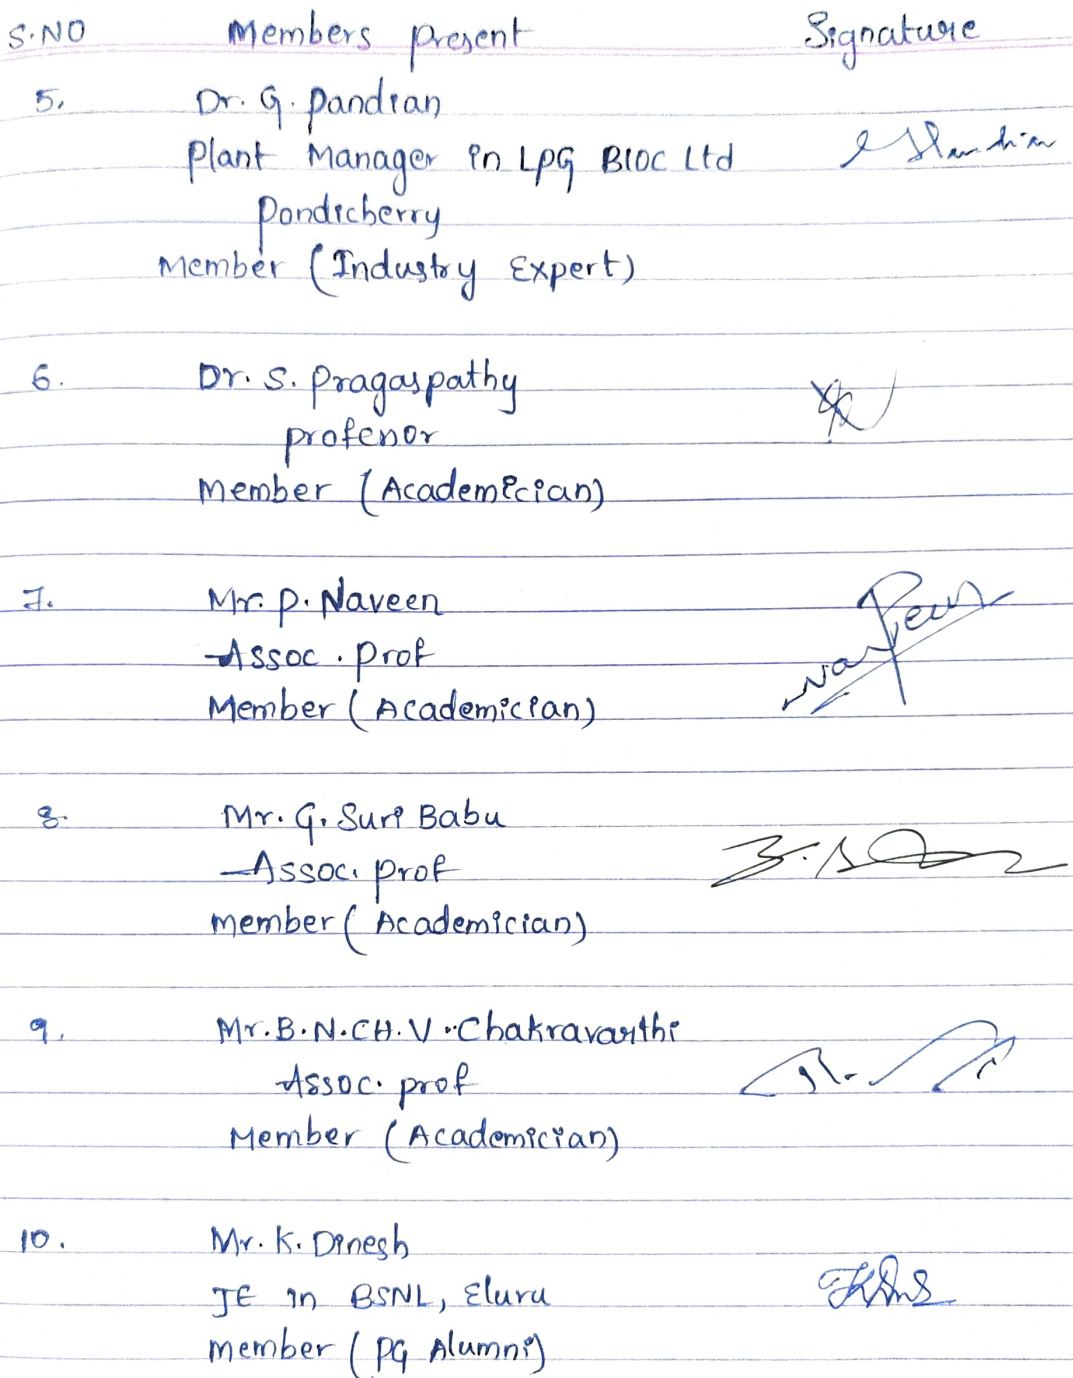 S.NO Members present Signature
5. Dr. G. Pandian
Plant Manager in LPG BIOC Ltd
Pondicherry
Member (Industry Expert)
6. Dr. S. Pragaspathy
professor
Member (Academician)
7. Mr. P. Naveen
Assoc. Prof
Member (Academician)
8. Mr. G. Suri Babu
Assoc. Prof
member (Academician)
9. Mr. B.N.CH.V. Chakravarthi
Assoc. prof
Member (Academician)
10. Mr. K. Dinesh
JE in BSNL, Eluru
member (PG Alumni)